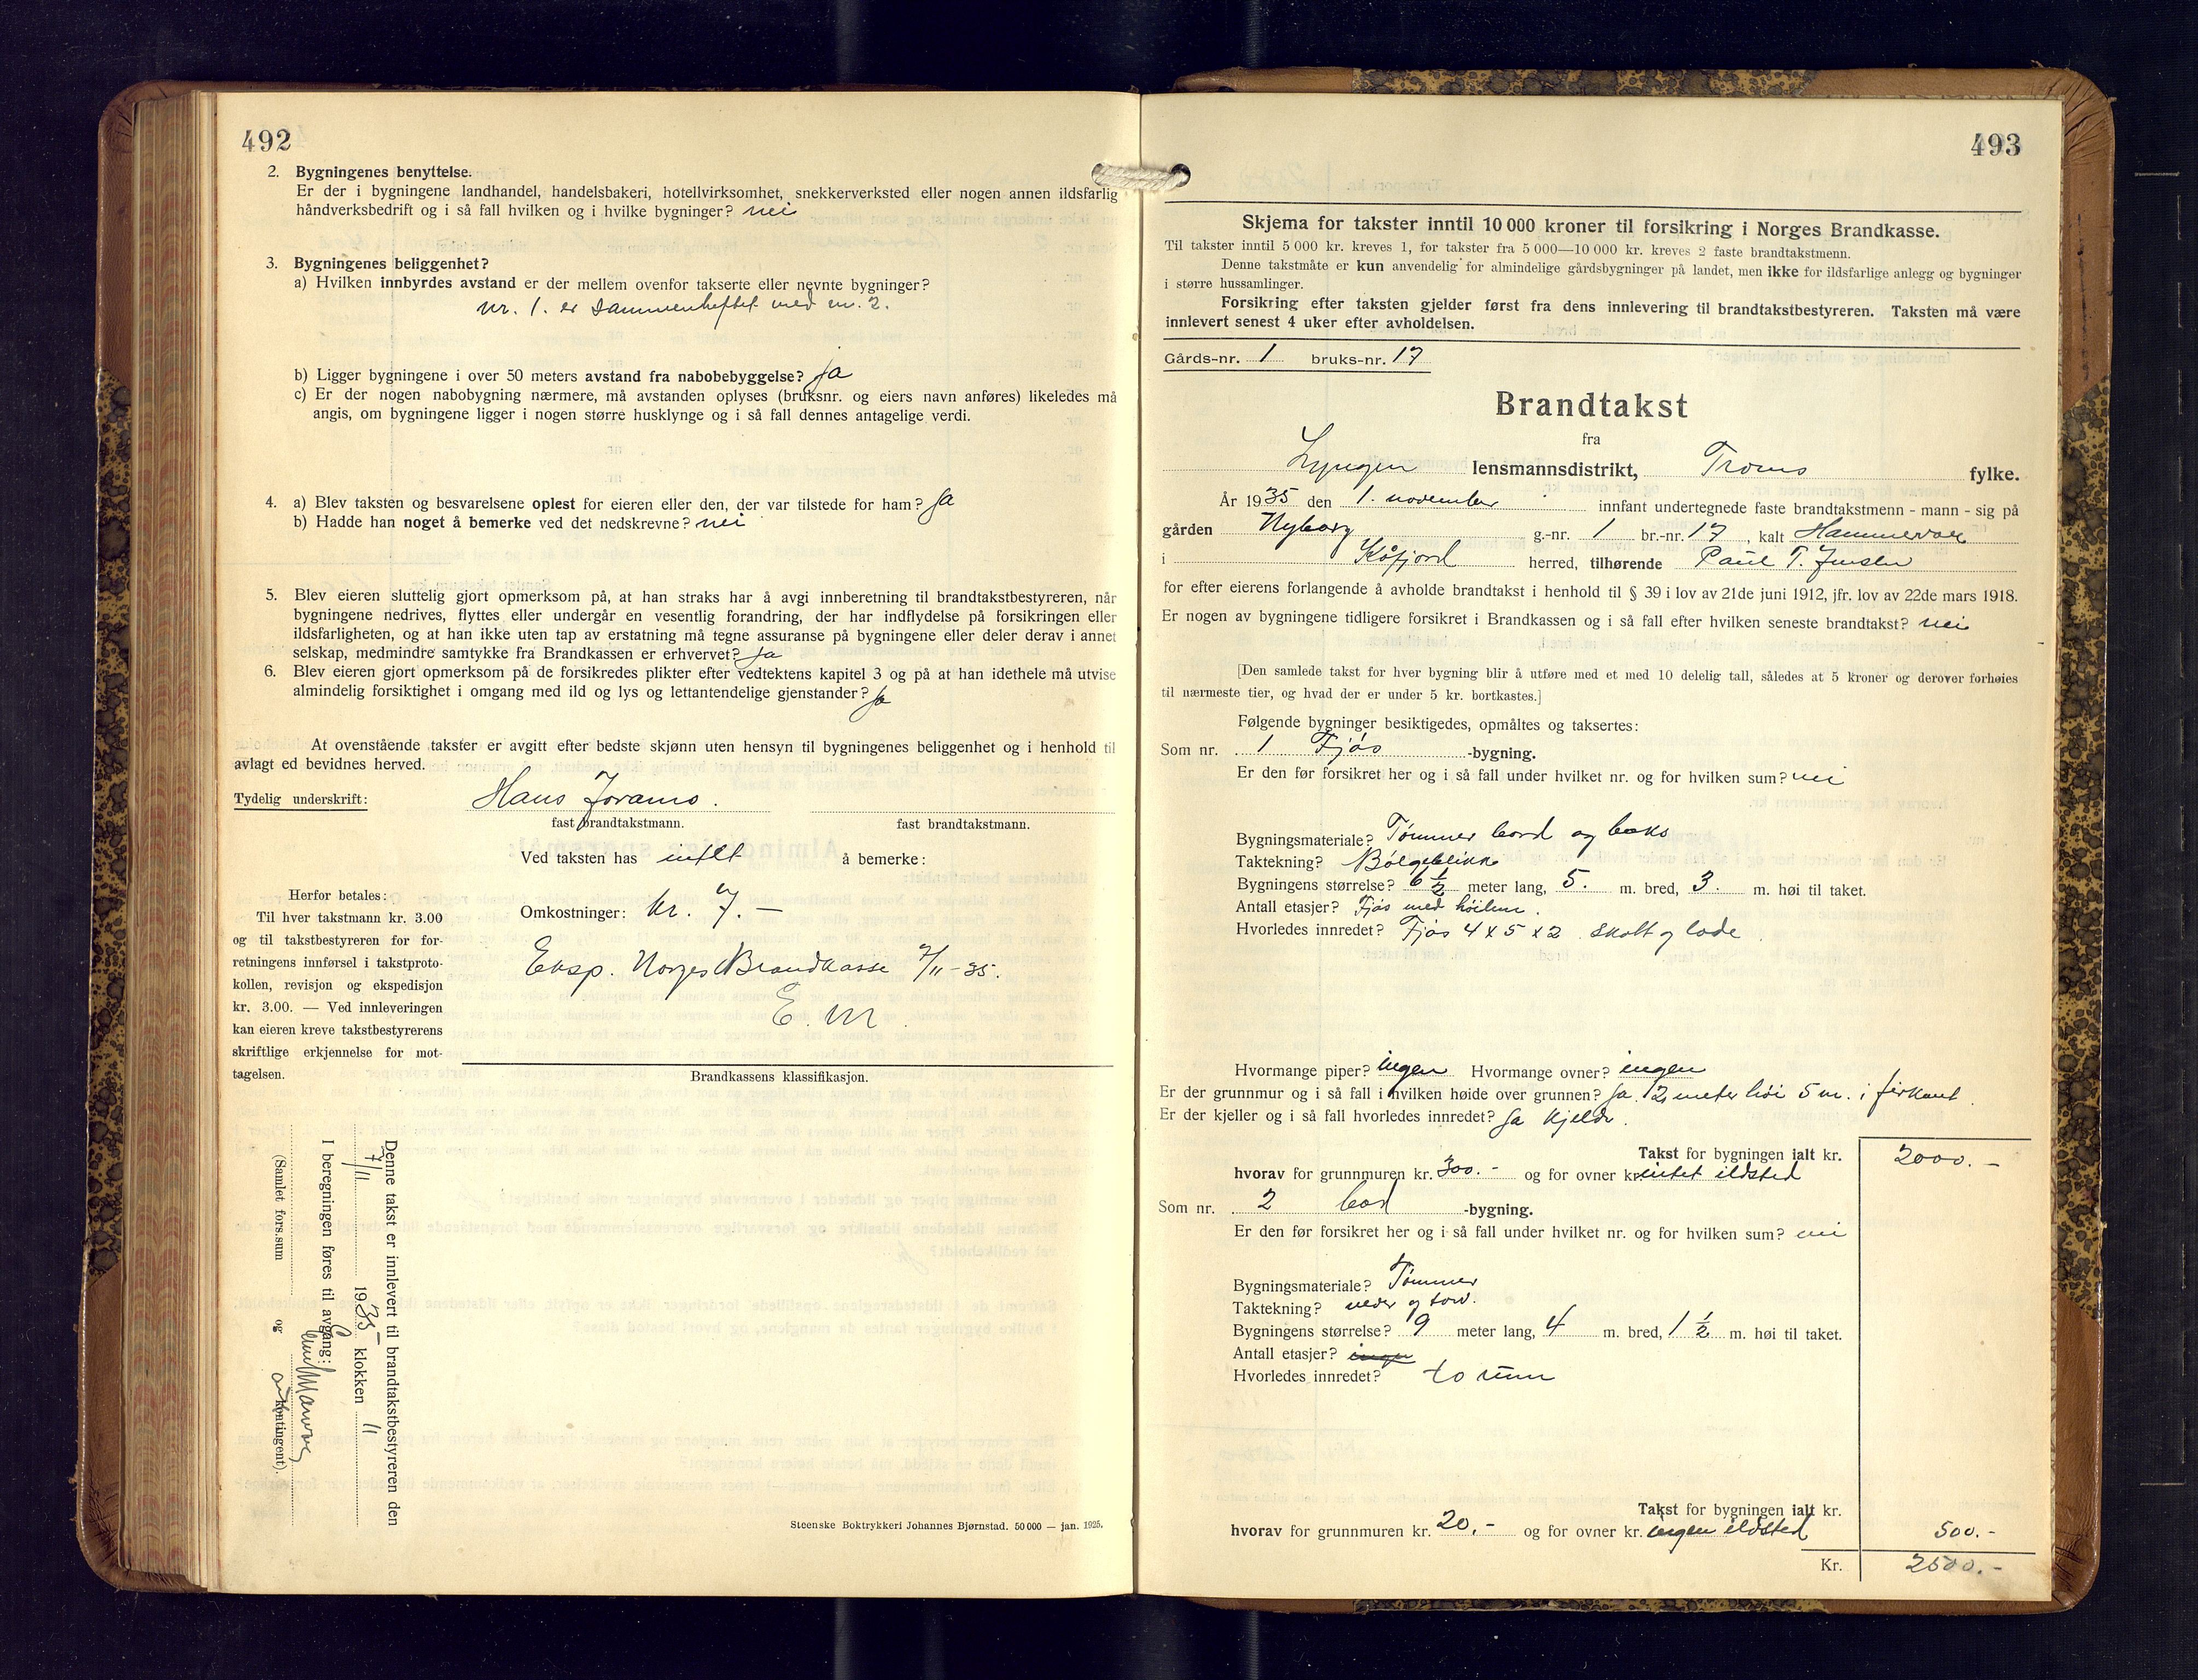 492
2. Bygningenes benyttelse.
Er der i bygningene landhandel, handelsbakeri, hotellvirksomhet, snekkerverksted eller nogen annen ildsfarlig
håndverksbedrift og i så fall hvilken og i hvilke bygninger? nei
3. Bygningenes beliggenhet?
a) Hvilken innbyrdes avstand er der mellem ovenfor takserte eller nevnte bygninger?
nr. 1. er sammenheftet med nr. 2.
b) Ligger bygningene i over 50 meters avstand fra nabobebyggelse? ja
c) Er der nogen nabobygning nærmere, må avstanden oplyses (bruksnr. og eiers navn anføres) likeledes må
angis, om bygningene ligger i nogen større husklynge og i så fall dennes antagelige verdi.
4. a) Blev taksten og besvarelsene oplest for eieren eller den, der var tilstede for ham? Ja
b) Hadde han noget å bemerke ved det nedskrevne? nei
5. Blev eieren sluttelig gjort opmerksom på, at han straks har å avgi innberetning til brandtakstbestyreren, når
bygningene nedrives, flyttes eller undergår en vesentlig forandring, der har indflydelse på forsikringen eller
ildsfarligheten, og at han ikke uten tap av erstatning må tegne assuranse på bygningene eller deler derav i annet
selskap, medmindre samtykke fra Brandkassen er erhvervet? Ja
6. Blev eieren gjort opmerksom på de forsikredes plikter efter vedtektens kapitel 3 og på at han idethele må utvise
almindelig forsiktighet i omgang med ild og lys og lettantendelige gjenstander? Ja
At ovenstående takster er avgitt efter bedste skjønn uten hensyn til bygningenes beliggenhet og i henhold til
avlagt ed bevidnes herved.
Tydelig underskrift: Hans Joramo.
fast brandtakstmann. fast brandtakstmann.
Ved taksten has intet å bemerke:
Herfor betales:
Til hver takstmann kr. 3.00
og til takstbestyreren for for-
retningens innførsel i takstproto-
kollen, revisjon og ekspedisjon
kr. 3.00. — Ved innleveringen
kan eieren kreve takstbestyrerens
skriftlige erkjennelse for mot-
tagelsen.
Omkostninger: kr. 7.—
Eksp. Norges Brandkasse 7/11-35.
E. M.
Brandkassens klassifikasjon.
Denne takst er innlevert til brandtakstbestyreren den
7/11 1935 klokken 11
I beregningen føres til avgang:
(Samlet fors.sum og kontingent).
Steenske Boktrykkeri Johannes Bjørnstad. 50 000 — jan. 1925.
493
Skjema for takster inntil 10 000 kroner til forsikring i Norges Brandkasse.
Til takster inntil 5 000 kr. kreves 1, for takster fra 5 000—10 000 kr. kreves 2 faste brandtakstmenn.
Denne takstmåte er kun anvendelig for almindelige gårdsbygninger på landet, men ikke for ildsfarlige anlegg og bygninger
i større hussamlinger.
Forsikring efter taksten gjelder først fra dens innlevering til brandtakstbestyreren. Taksten må være
innlevert senest 4 uker efter avholdelsen.
Gårds-nr. 1 bruks-nr. 17
Brandtakst
fra
Lyngen lensmannsdistrikt, Troms fylke.
År 1935 den 1. november innfant undertegnede faste brandtakstmenn - mann - sig på
gården Nyborg g.-nr. 1 br.-nr. 17, kalt
i Kåfjord herred, tilhørende Paul T. Jensen
for efter eierens forlangende å avholde brandtakst i henhold til § 39 i lov av 21de juni 1912, jfr. lov av 22de mars 1918.
Er nogen av bygningene tidligere forsikret i Brandkassen og i så fall efter hvilken seneste brandtakst? nei
[Den samlede takst for hver bygning blir å utføre med et med 10 delelig tall, således at 5 kroner og derover forhøies
til nærmeste tier, og hvad der er under 5 kr. bortkastes.]
Følgende bygninger besiktigedes, opmåltes og taksertes:
Som nr. 1 Fjøs -bygning.
Er den før forsikret her og i så fall under hvilket nr. og for hvilken sum? nei
Bygningsmateriale? Tømmer bord og
Taktekning? Bølgeblikk
Bygningens størrelse? 6 1/2 meter lang, 5. m. bred, 3. m. høi til taket.
Antall etasjer? Fjøs med
Hvorledes innredet? Fjøs 4 x 5 x 2. og lade.
Hvormange piper? ingen Hvormange ovner? ingen
Er der grunnmur og i så fall i hvilken høide over grunnen? Ja. 2 meter høi 5 m. i firkant.
Er der kjeller og i så fall hvorledes innredet? Ja
Takst for bygningen ialt kr. 2000.—
hvorav for grunnmuren kr. 300.- og for ovner kr. intet ildsted
Som nr. 2 bod -bygning.
Er den før forsikret her og i så fall under hvilket nr. og for hvilken sum? nei
Bygningsmateriale? Tømmer
Taktekning? never og torv.
Bygningens størrelse? 9 meter lang, 4 m. bred, 1 1/2 m. høi til taket.
Antall etasjer? ingen
Hvorledes innredet? to rum
Takst for bygningen ialt kr.
hvorav for grunnmuren kr. 20.- og for ovner kr. ingen ildsted 500.-
Kr. 2500.-